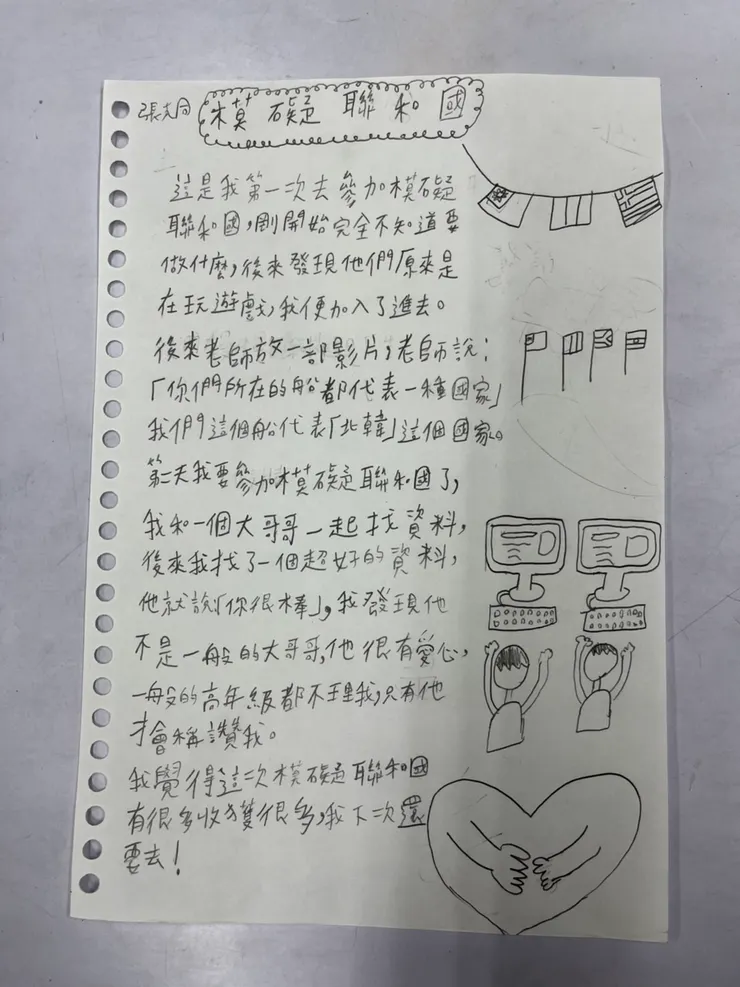 張克同
模礙聯和國
這是我第一次去參加模礙
聯和國,剛開始完全不知道要
做什麼,後來發現他們原來是
在玩遊戲,我便加入了進去。
後來老師放一部影片,老師說:
「你們所在的船都代表一種國家」
我們這個船代表「北韓」這個國家。
第二天我要參加模礙聯和國了,
我和一個大哥哥一起找資料,
後來我找了一個超好的資料,
他就說「你很棒」,我發現他
不是一般的大哥哥,他很有愛心,
一般的高年級都不理我,只有他
才會稱讚我。
我覺得這次模礙聯和國
有很多收獲很多,我下次還
要去!